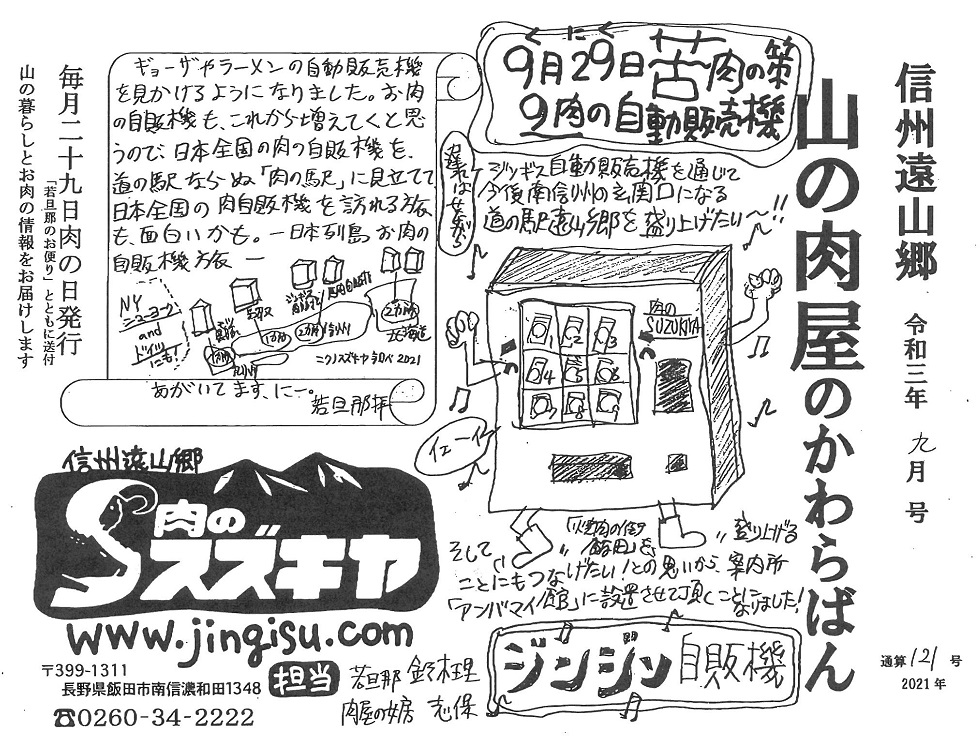 信州遠山郷 令和三年 九月号
山の肉屋のかわらばん
通算121号
2021年
く に く
9月29日苦肉の策
9肉の自動販売機
ジンギス自動販売機を通じて
今後南信州の玄関口になる
道の駅遠山郷を盛り上げたい〜!!
肉の
SUZUKIYA
1 2 3
4 5 6
7 8 9
イェーイ
そして、「焼肉の街
飯田」を、盛り上げる
ことにもつなげたい!との思いから、案内所
「アンバマイ館」に設置させて頂くことに
なりました!
ジンジン自販機
ギョーザやラーメンの自動販売機
を見かけるようになりました。お肉
の自販機も、これから増えてくと思
うので、日本全国の肉の自販機を、
道の駅ならぬ「肉の駅」に見立てて
日本全国の肉自販機を訪れる旅
も、面白いかも。ー日本列島お肉の
自販機旅ー
NY
ニューヨーク
and
ドイツ
にも!
北海道
2021
あがいてます、にー。
若旦那拝
毎月二十九日肉の日発行
「若旦那のお便り」とともに送付
山の暮らしとお肉の情報をお届けします
信州遠山郷
肉の
スズキヤ
www.jingisu.com
〒399-1311
長野県飯田市南信濃和田1348
☎0260-34-2222
担当
若旦那 鈴木理
肉屋の女房 志保